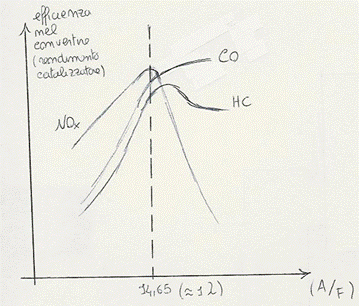 efficienza
nel
convertire
(rendimento
catalizzatore)
CO
HC
NOx
14,65 (≈1λ)
(A/F)